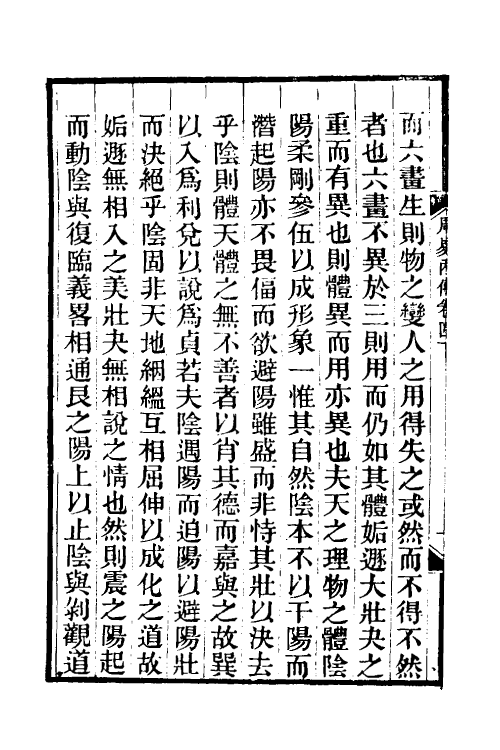 而六畫生則物之變人之用得失之或然而不得不然
者也六畫不異於三則用而仍如其體姤遯大壯夬之
重而有異也則體異而用亦異也夫天之理物之體陰
陽柔剛參伍以成形象一惟其自然陰本不以干陽而
潛起陽亦不畏偪而欲避陽雖盛而非恃其壯以決去
乎陰則體天體之無不善者以肖其德而嘉與之故巽
以入爲利兌以說爲貞若夫陰遇陽而迫陽以避陽壯
而決絕乎陰固非天地絪縕互相屈伸以成化之道故
姤遯無相入之美壯夬無相說之情也然則震之陽起
而動陰與復臨義畧相通艮之陽上以止陰與剝觀道
周易內傳卷四下